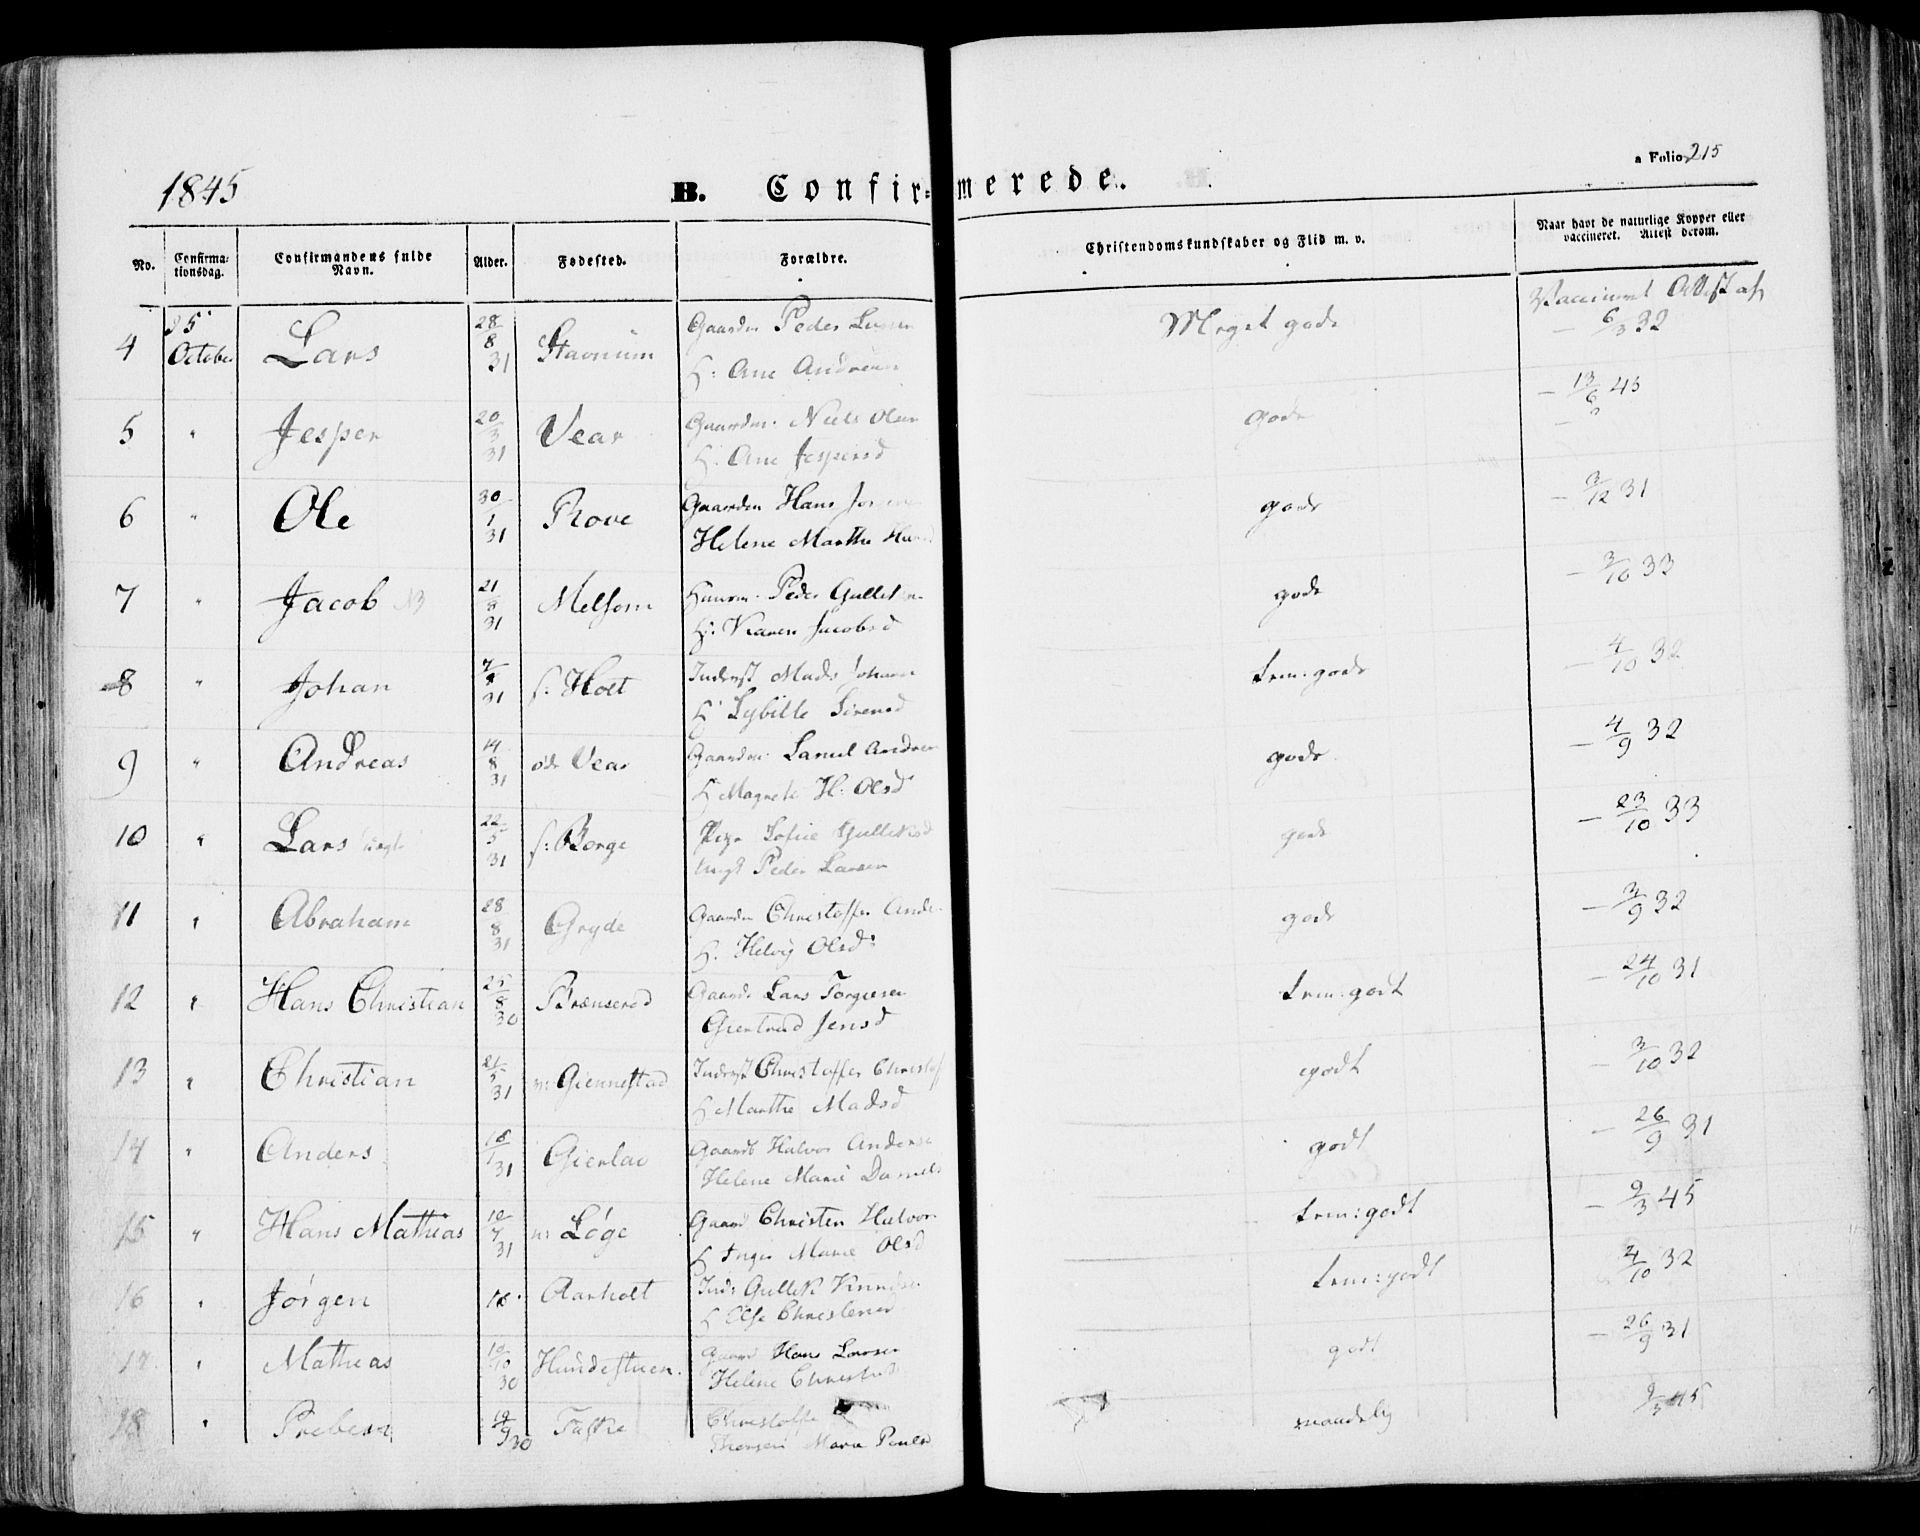 1845
B. Confir=merede.
a Folio 215
No.
Confirma-
tionsdag.
Confirmandens fulde
Navn.
Alder.
Fødested.
Forældre.
Christendomskundskaber og Flid m. v.
Naar havt de naturlige Kopper eller
vaccineret. Attest derom.
4 25 October Lars 28/8 31 Stavnum Gaardm Peder
H: Ane Meget gode Vaccineret Attest af
- 6/3 32
5 " Jesper 20/3 31 Vear Gaardm: Niels Olsen
H: Ane Jespersd gode - 13/6 45
6 " Ole 30/1 31 Rove Gaardm Hans
Helene Marthe gode - 3/12 31
7 " Jacob NB 21/8 31 Melsom Huusm: Peder Gulliksen
H: Karen Jacobsd gode - 3/10 33
8 " Johan 31 s: Holt Inderst Mads Johan
H: Sybille Sörensd tem: gode - 4/10 32
9 " Andreas 14/8 31 Vear Gaardm: Samuel Andre
H: Magrete H: Olsd gode - 4/9 32
10 " Lars Uægt 22/5 31 s: Borge Pige Sofie Gulliksd
Ungk Peder Larsen gode - 23/10 33
11 " Abraham 28/8 31 Gryde Gaardm Christoffer Ande
H: Helvig Olsd gode - 3/9 32
12 " Hans Christian 25/8 30 Brænserød Gaardm Lars Torgersen
Giertrud Jensd tem: godt - 24/10 31
13 " Christian 21/5 31 n: Giennestad Inderst Christoffer Christof
H: Marthe Madsd godt - 3/10 32
14 " Anders 18/1 31 Gierlao Gaardb Halvor Anderse
Helene Marie Daniels godt - 26/9 31
15 " Hans Mathias 10/7 31 n: Løge Gaard Christen Halvor
H: Inger Marie Olsd tem: godt - 9/3 45
16 " Jörgen 16 Aarholt Inds Gullik Knudse
H: Else Christensd tem: godt - 4/10 32
17 " Mathias 10/10 30 Hundestuen. Gaard Hans Larsen
Helene godt - 26/9 31
18 " Preben 19/9 30 Falke Christoffe
Maria Paulsd maadelig 9/3 45